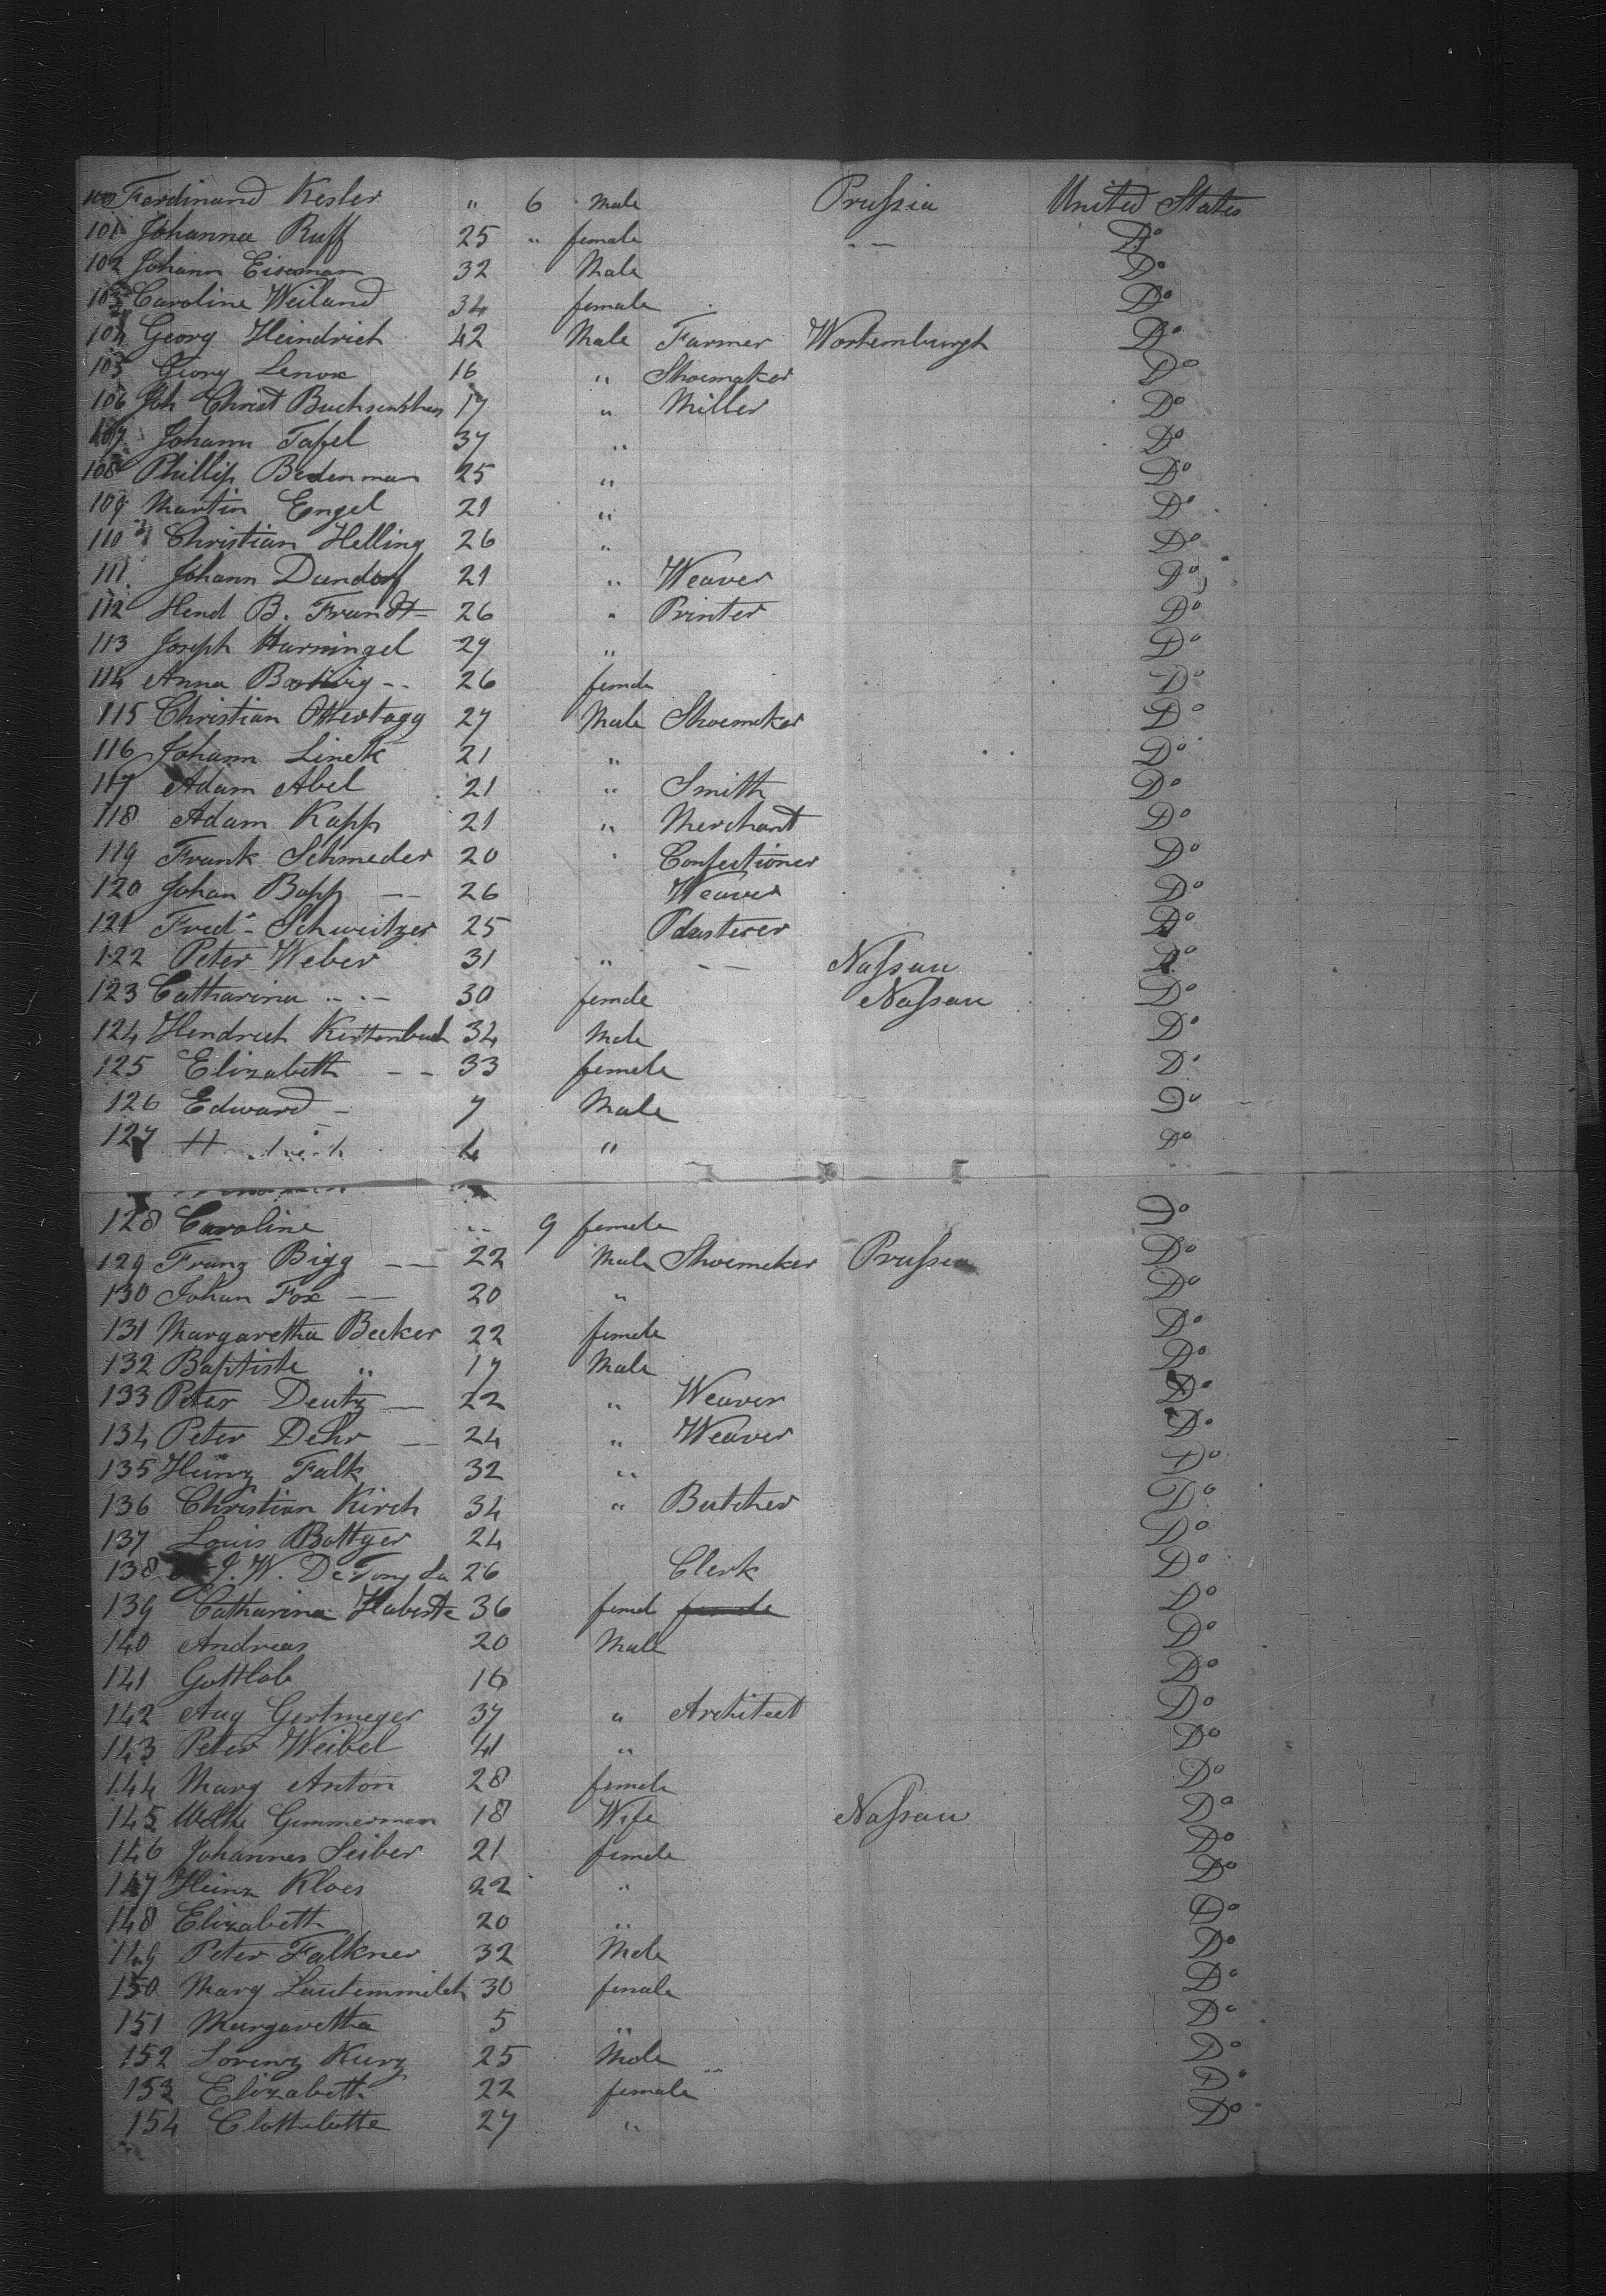 100 Ferdinand Kesler " 6 Male Prussia United States
101 Johanna Ruff 25 " female - - Do
102 Johann Eiseman 32 Male Do
103 Caroline Weiland 34 female Do
104 Georg Heindrich 42 Male Farmer Wortemburgh Do
105 Georg Lenox 16 " Shoemaker Do
106 Joh Christ 17 " Miller Do
107 Johann Tafel 37 " Do
108 Phillip Bedenman 25 " Do
109 Martin Engel 21 " Do
110 Christian Helling 26 " Do
111 Johann Dundorf 21 " Weaver Do
112 Hend B. Frandt 26 " Printer Do
113 Joseph Harningel 29 " Do
114 Anna - - 26 female Do
115 Christian Ottertagg 27 Male Shoemaker Do
116 Johann Linek 21 " Do
117 Adam Abel 21 " Smith Do
118 Adam Kapp 21 " Merchant Do
119 Frank Schmeder 20 " Confectioner Do
120 Johan Bopp — 26 Weaver Do
121 Fred - Schweitzer 25 Plasterer Do
122 Peter Weber 31 " - - Nassau Do
123 Catharina - - - 30 female Nassau Do
124 Hendrich 34 Male Do
125 Elizabeth - - 33 female Do
126 Edward - 7 Male Do
127 4 " Do
128 Caroline " 9 female Do
129 Franz Bigg — 22 Male Shoemaker Prussia Do
130 Johan Fox — 20 " Do
131 Margaretha Becker 22 female Do
132 Baptiste " 17 Male Do
133 Peter Deutz — 22 " Weaver Do
134 Peter Dehr — 24 " Weaver Do
135 Heinz Falk 32 " Do
136 Christian Kirch 34 " Butcher Do
137 Louis Bottger 24 Do
138 J. W. 26 Clerk Do
139 Catharina 36 femal female Do
140 Andreas 20 Male Do
141 Gottlob 16 Do
142 Aug Gertmeyer 37 " Architect Do
143 Peter Weibel 41 " Do
144 Mary Anton 28 female Do
145 Gimmerman 18 Wife Nassau Do
146 Johannes Seiber 21 female Do
147 Heinz Kloes 22 " Do
148 Elizabeth 20 " Do
149 Peter Falkner 32 Male Do
150 Mary 30 female Do
151 Margaretha 5 " Do
152 Lorenz Kurz 25 Male Do
153 Elizabeth 22 female Do
154 27 " Do